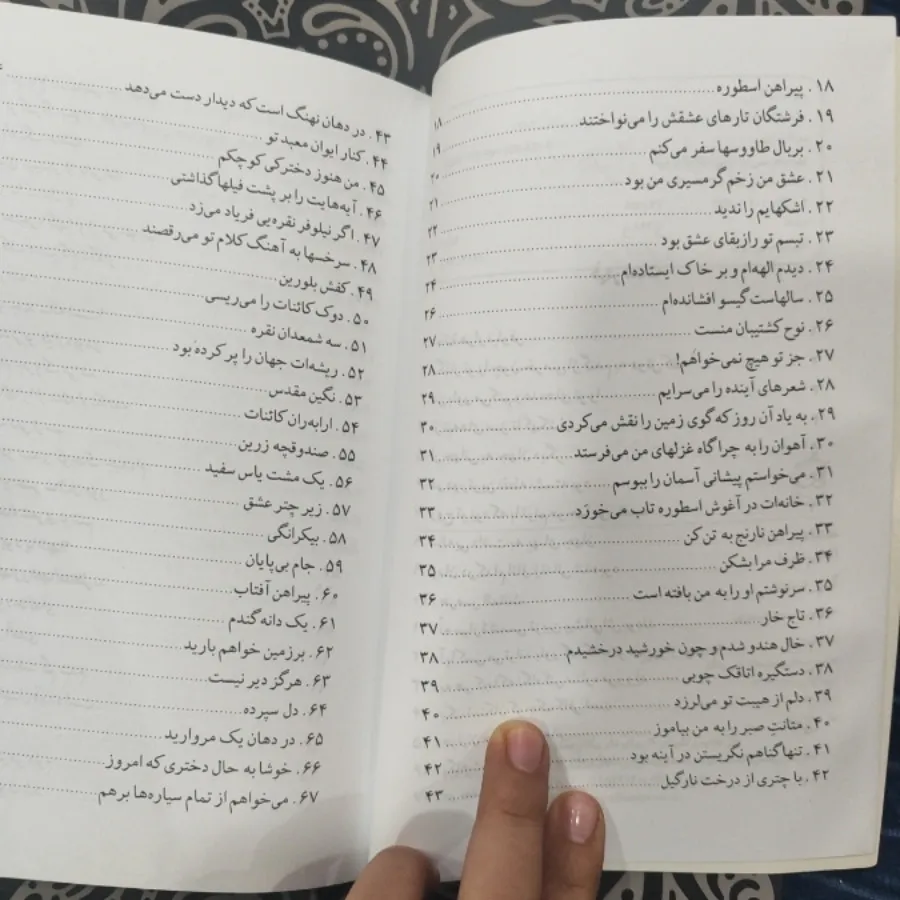 ۱۸. پیراهن اسطوره ۱۸
۱۹. فرشتگان تارهای عشقش را می‌نواختند ۱۹
۲۰. بربال طاووسها سفر می‌کنم ۲۰
۲۱. عشق من زخم گرمسیری من بود ۲۱
۲۲. اشکهایم را ندید ۲۲
۲۳. تبسم تو رازبقای عشق بود ۲۳
۲۴. دیدم الهه‌ام و بر خاک ایستاده‌ام ۲۴
۲۵. سالهاست گیسو افشانده‌ام ۲۶
۲۶. نوح کشتیبان منست ۲۷
۲۷. جز تو هیچ نمی‌خواهم! ۲۸
۲۸. شعرهای آینده را می‌سرایم ۲۹
۲۹. به یاد آن روز که گوی زمین را نقش می‌کردی ۳۰
۳۰. آهوان را به چراگاه غزلهای من می‌فرستد ۳۱
۳۱. می‌خواستم پیشانی آسمان را ببوسم ۳۲
۳۲. خانه‌ات در آغوش اسطوره تاب می‌خورد ۳۳
۳۳. پیراهن نارنج به تن کن ۳۴
۳۴. ظرف مرا بشکن ۳۵
۳۵. سرنوشتم او را به من بافته است ۳۶
۳۶. تاج خار ۳۷
۳۷. خال هندو شدم و چون خورشید درخشیدم ۳۸
۳۸. دستگیره اتاقک چوبی ۳۹
۳۹. دلم از هیبت تو می‌لرزد ۴۰
۴۰. متانتِ صبر را به من بیاموز ۴۱
۴۱. تنها گناهم نگریستن در آینه بود ۴۲
۴۲. با چتری از درخت نارگیل ۴۳
۴۳. در دهان نهنگ است که دیدار دست می‌دهد
۴۴. کنار ایوان معبد تو
۴۵. من هنوز دخترکی کوچکم
۴۶. آیه‌هایت را بر پشت فیلها گذاشتی
۴۷. اگر نیلوفر نقره‌یی فریاد می‌زد
۴۸. سرخسها به آهنگ کلام تو می‌رقصند
۴۹. کفش بلورین
۵۰. دوک کائنات را می‌ریسی
۵۱. سه شمعدان نقره
۵۲. ریشه‌ات جهان را پر کرده بود
۵۳. نگین مقدس
۵۴. ارابه‌ران کائنات
۵۵. صندوقچه زرین
۵۶. یک مشت یاس سفید
۵۷. زیر چتر عشق
۵۸. بیکرانگی
۵۹. جام بی‌پایان
۶۰. پیراهن آفتاب
۶۱. یک دانه گندم
۶۲. برزمین خواهم بارید
۶۳. هرگز دیر نیست
۶۴. دل سپرده
۶۵. در دهان یک مروارید
۶۶. خوشا به حال دختری که امروز
۶۷. می‌خواهم از تمام سیاره‌ها برهم